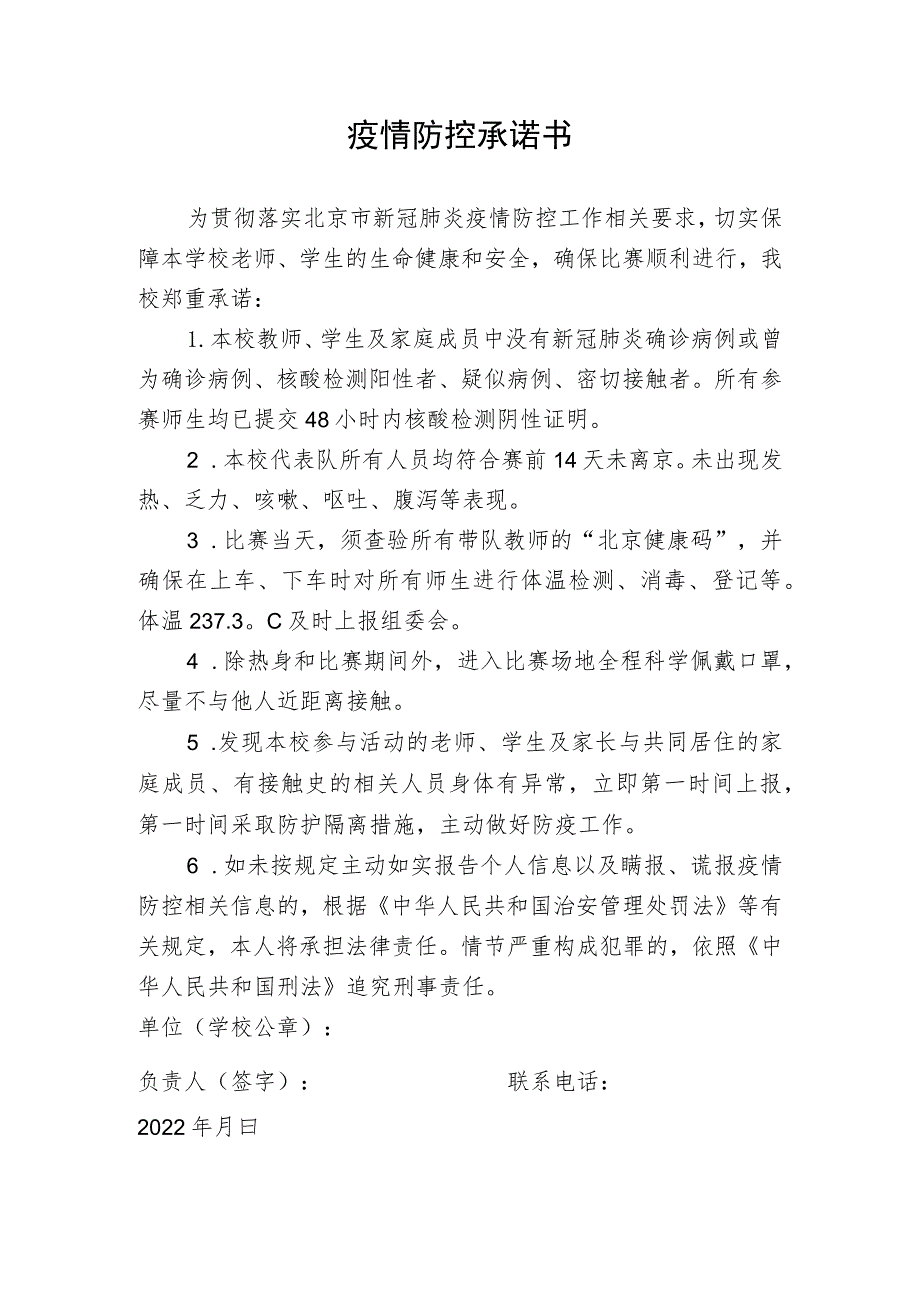 疫情防控承诺书
为贯彻落实北京市新冠肺炎疫情防控工作相关要求，切实保
障本学校老师、学生的生命健康和安全，确保比赛顺利进行，我
校郑重承诺：
1.本校教师、学生及家庭成员中没有新冠肺炎确诊病例或曾
为确诊病例、核酸检测阳性者、疑似病例、密切接触者。所有参
赛师生均已提交48小时内核酸检测阴性证明。
2 .本校代表队所有人员均符合赛前14天未离京。未出现发
热、乏力、咳嗽、呕吐、腹泻等表现。
3 .比赛当天，须查验所有带队教师的“北京健康码”，并
确保在上车、下车时对所有师生进行体温检测、消毒、登记等。
体温237.3。C及时上报组委会。
4 .除热身和比赛期间外，进入比赛场地全程科学佩戴口罩，
尽量不与他人近距离接触。
5 .发现本校参与活动的老师、学生及家长与共同居住的家
庭成员、有接触史的相关人员身体有异常，立即第一时间上报，
第一时间采取防护隔离措施，主动做好防疫工作。
6 .如未按规定主动如实报告个人信息以及瞒报、谎报疫情
防控相关信息的，根据《中华人民共和国治安管理处罚法》等有
关规定，本人将承担法律责任。情节严重构成犯罪的，依照《中
华人民共和国刑法》追究刑事责任。
单位（学校公章）：
负责人（签字）： 联系电话：
2022年月曰